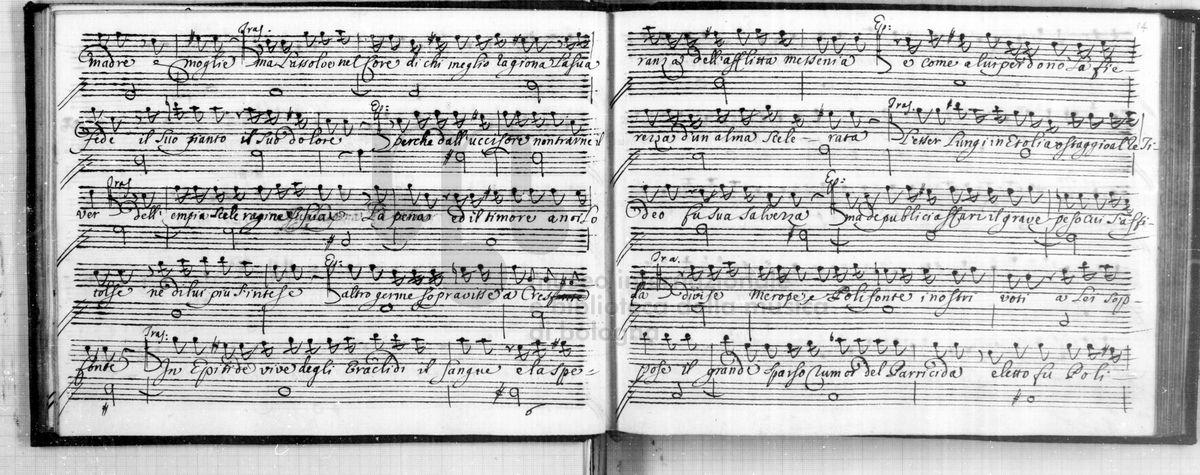 Tras:
madre e moglie ma l'assolve nel core di chi meglio ragiona la sua
Ep:
fede il suo pianto il suo dolore perche dall'uccisore non trarne il
Tras
ver dell'empia sceleragine la sua la pena ed il timore a noi lo
Ep:
tolse ne di lui piu s'intese altro germe sopravisse a Cresfonte
Tras:
fonte In Epitide vive degli Eraclidi il sangue e la spe-
14
Ep:
ranza dell'afflitta messenia e come a lui perdono la fie
Tras:
rezza d'un alma scele- rata L'esser lungi in Etolia ostaggio al Re Ti-
Ep:
deo fu sua salvezza ma de publici affari il grave peso cui s'affi-
Tra.
da divise Merope e Polifonte i nostri voti a Lei sop-
pose il grande sparso rumor del Parricida eletto fu Poli-
museo internazionale
biblioteca della musica
di bologna